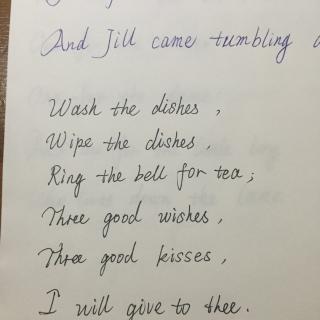 And Jill came tumbling
Wash the dishes,
Wipe the dishes,
Ring the bell for tea;
Three good wishes,
Three good kisses,
I will give to thee.